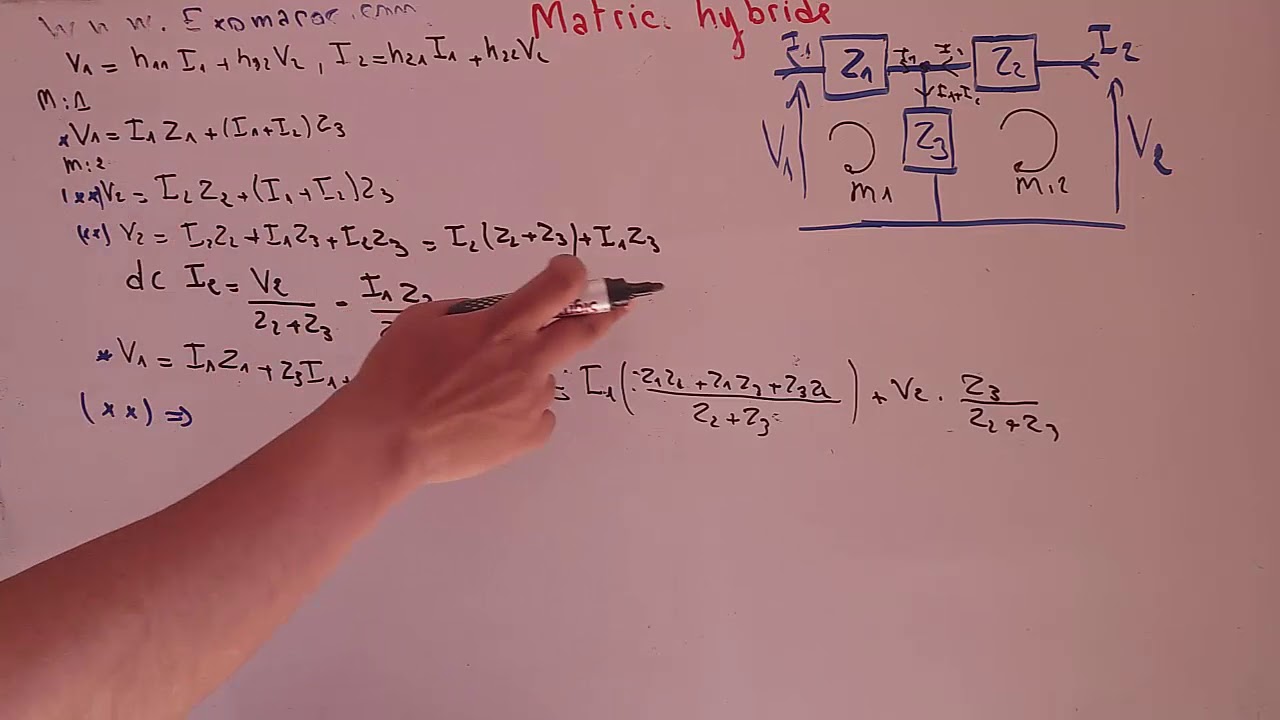 Www. Exomaroc.com
Matric hybride
V1 = h11 I1 + h12 V2 , I2 = h21 I1 + h22 V2
m:1
* V1 = I1 Z1 + (I1+I2) Z3
m:2
(**) V2 = I2 Z2 + (I1 + I2) Z3
(**) V2 = I2 Z2 + I1 Z3 + I2 Z3 = I2 (Z2+Z3) + I1 Z3
dc I2 = V2 / (Z2+Z3) - I1 Z3
* V1 = I1 Z1 + Z3 I1 +
= I1 ( (Z1Z2 + Z1Z3 + Z3Z2) / (Z2+Z3) ) + V2 . Z3 / (Z2+Z3)
(**) ⇒
I1 Z1 I1 I2 Z2 I2
I1+I2
V1 Z3 V2
m1 m:2